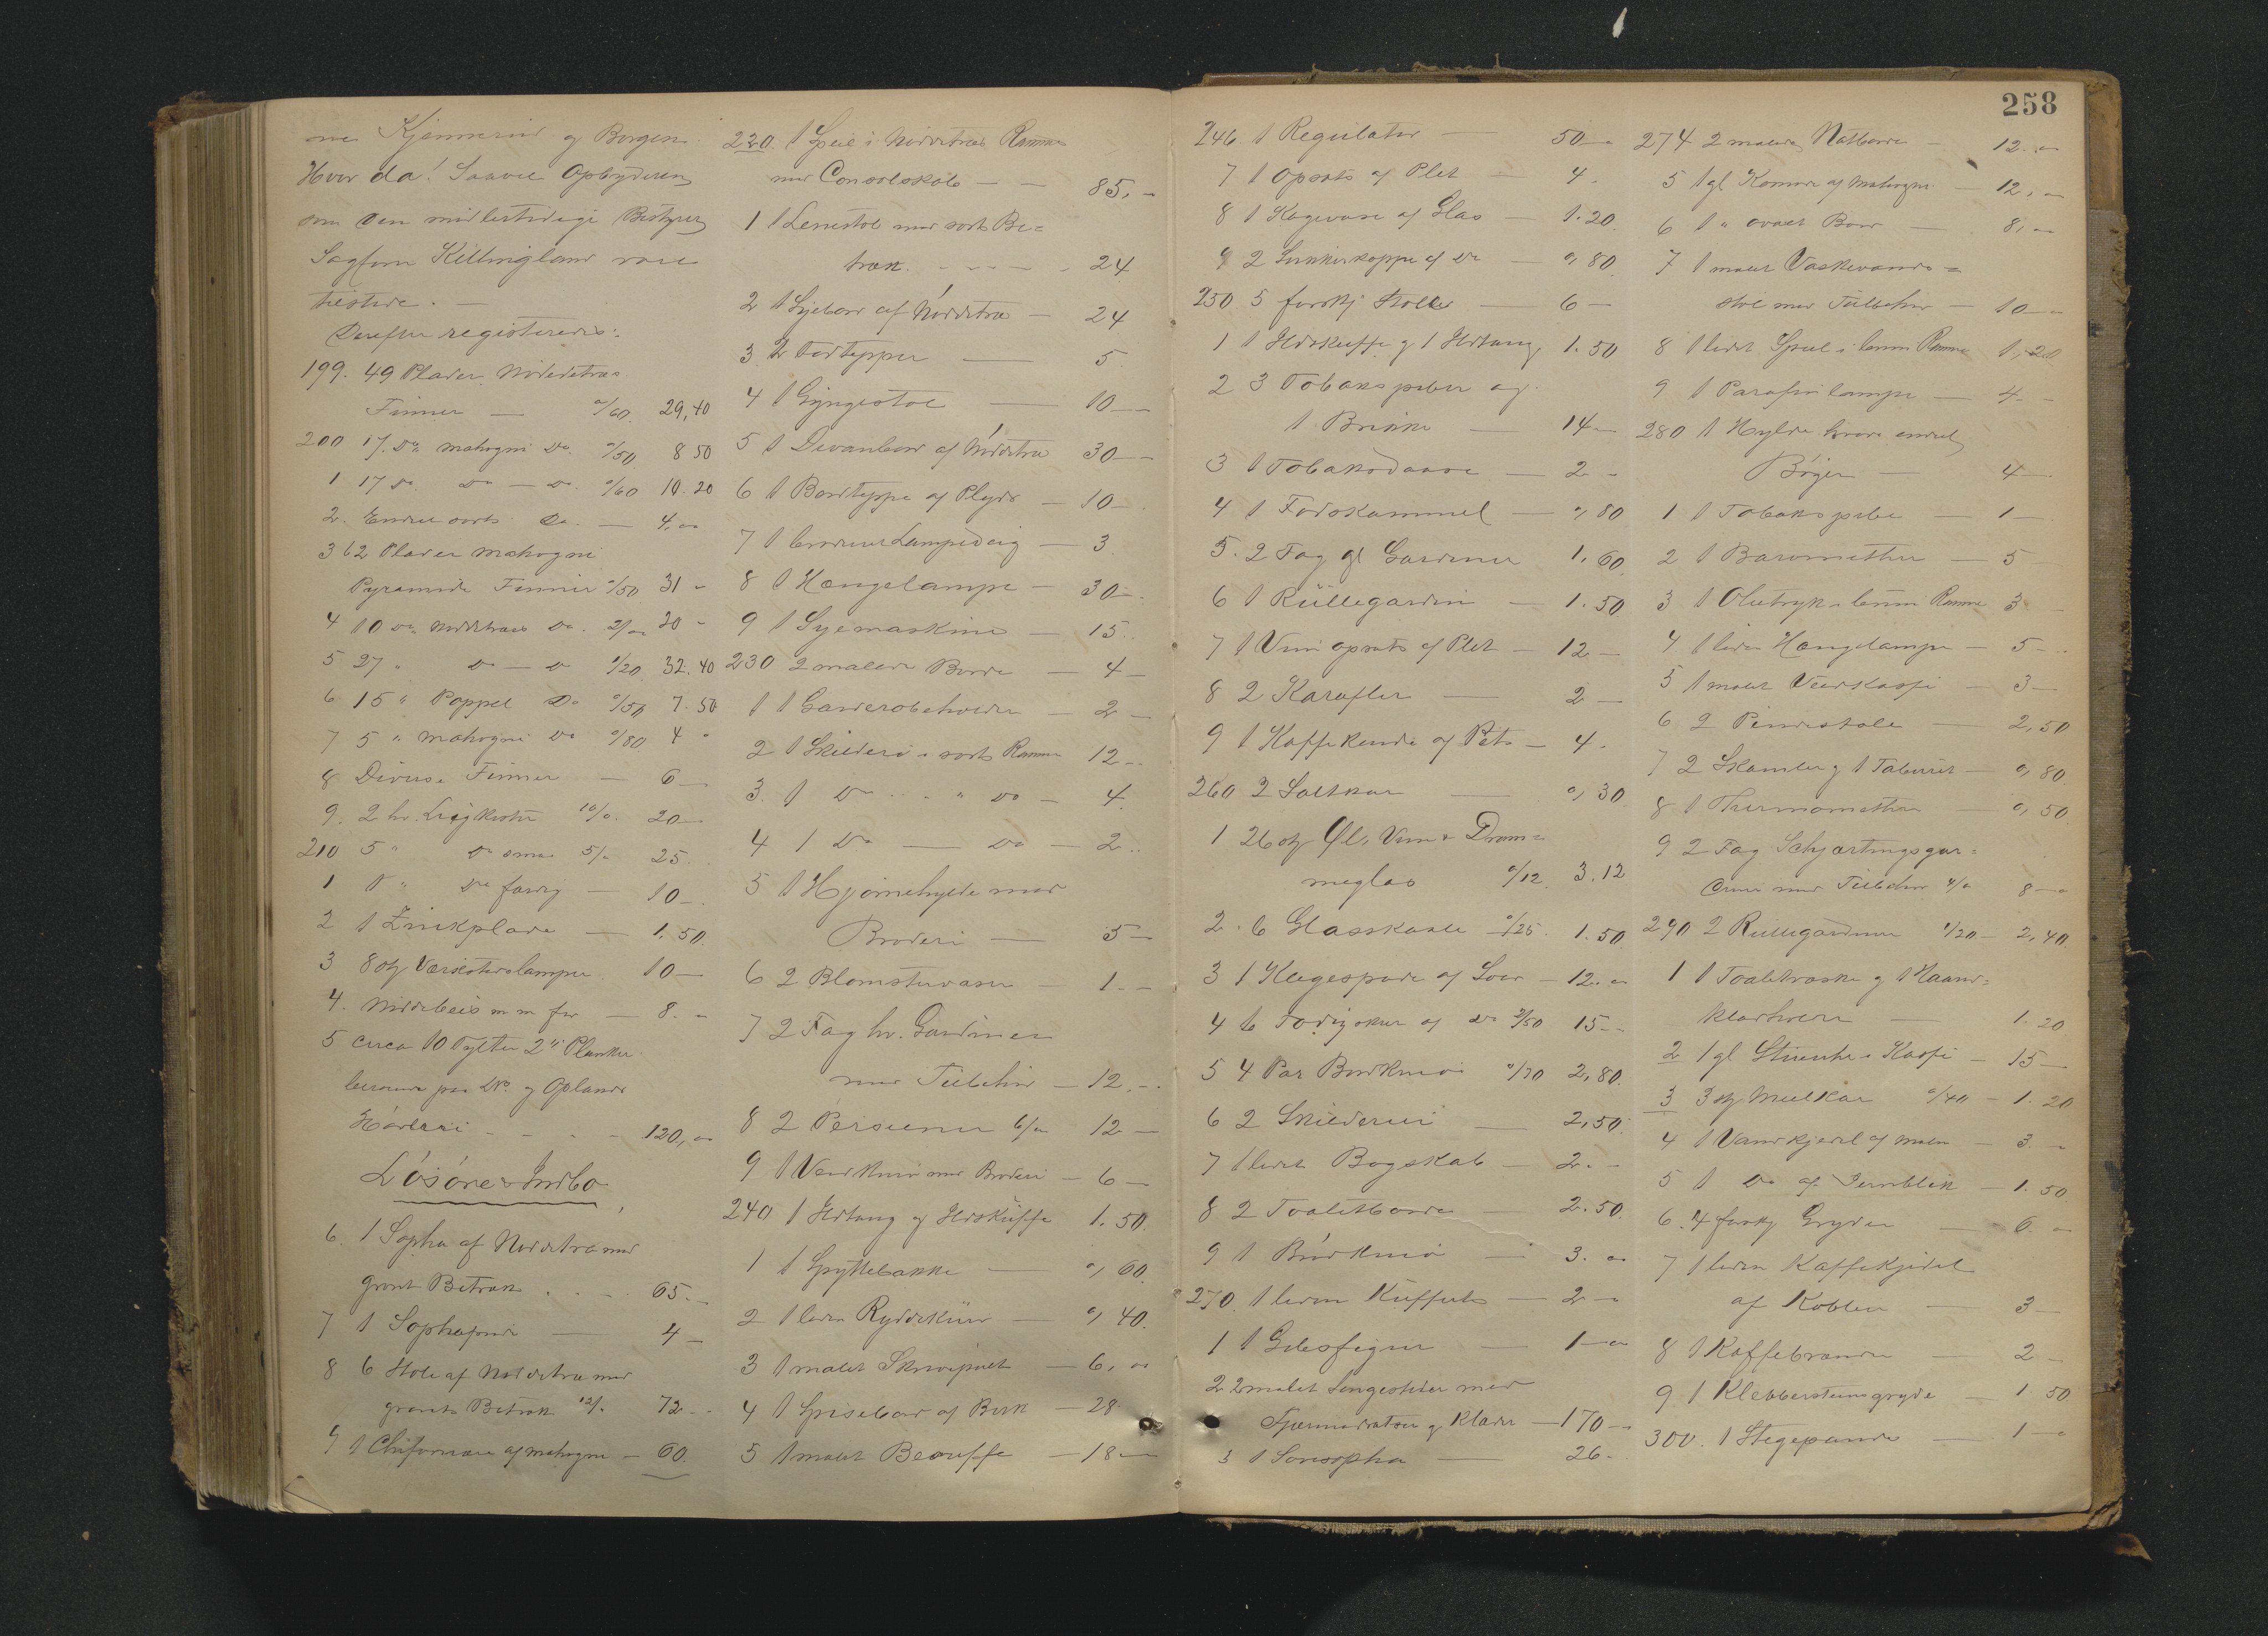 Kjæmnerind og Borgen.
Hvor da! Saavel Opbyderen
som den midlertidige Bestyrer
Sagfører Killingland vare
tilstede. —
Derefter registreredes:
199. 49 Plader Nøddetræs
Finner — "/60. 29,40
200 17. Do mahogni Do. "/50 8 50
1 17 Do. Do — Do. "/60 10.20
2. Endel sorts Do. — 4."
3 62 Plader mahogni
Pyramide Finner "/50 31 "
4 10 Do. Nøddetræs Do. 2/" 20 "
5 27 " Do — Do 1/20 32.40
6 15 " Poppel Do "/50 7.50
7 5 " mahogni Do "/80 4 "
8 Diverse Finner — 6 —
9. 2 hv. Ligkister 10/" 20 —
210 5 " Do smaa 5/" 25.
1 1 " Do færdig — 10 —
2 1 Zinkplade — 1.50.
3 8 stk Værkstedslamper 10 —
4. Nøddebeis m m for — 8. "
5 circa 10 Tylfter 2" Planker
beroende paa Do. og Oplands
Høvleri - - - - 120,"
Løsøre & Indbo
6. 1 Sopha af Nøddetræ med
grønt Betræk . . - 65 —
7 1 Sophapude — 4 —
8 6 Stole af Nøddetræ med
grønt Betræk 12/" 72 - -
9 1 Chifoniere af mahogni — 60.
220. 1 Speil i Nøddetræs Ramme
med Consolskab — — 85,—
1 1 Lenestol med sort Be=
træk. - - - - - 24
2 1 Syebord af Nøddetræ — 24
3 2 Fodtepper — 5
4 1 Gyngestol — 10 —
5 1 Divanbord af Nøddetræ 30 —
6 1 Bordteppe af Plyds — 10 —
7 1 broderet Lampedug — 3.
8 1 Hængelampe — 30 —
9 1 Syemaskine — 15..
230 2 malede Borde — 4 —
1 1 Garderobeholder — 2 —
2 1 Skilderi i sort Ramme 12 ..
3. 1 Do . . - " Do — 4.
4 1 Do — Do — 2..
5 1 Hjørnehylde med
Broderi — 5 —
6 2 Blomstervaser — 1. —
7 2 Fag hv. Gardiner
med Tilbehør — 12,—.
8 2 Persienner 6/" 12 —
9 1 Vedkurv med Broderi — 6 —
240 1 Ildtang og Ildskuffe 1.50.
1 1 Spyttebakke — ",60.
2 1 liden Ryddekurv — ",40.
3 1 malet Skrivepult — 6,"
4 1 Spisebord af Birk — 28
5 1 malet Beauffe — 18 —
258
246. 1 Regulator — 50 —
7 1 Opsats af Plet — 4.
8 1 Kagevase af Glas — 1.20.
9 2 Sukkerkopper af Do — ",80.
250. 5 forskj Stole — 6 —
1 1 Ildskuffe og 1 Ildtang 1.50
2 3 Tobakspiber og
1 Brikke — 14 —
3 1 Tobaksdaase — 2 -
4 1 Fodskammel — ",80
5. 2 Fag gl Gardiner 1,60.
6 1 Rullegardin — 1.50.
7 1 Vinopsats af Plet — 12 —
8 2 Karafler — 2 —
9 1 Kaffekande af Plet — 4.
260 2 Saltkar — ",30.
1 26 stk Øl, Vin & Dram=
meglas "/12. 3.12
2. 6 Glasskaale "/25. 1.50
3 1 Kagespade af Sølv — 12."
4 6 Do 2/50 15 —
5 4 Par Bordknive "/70 2,80.
6 2 Skilderier — 2,50.
7 1 lidet Bogskab — 2. -
8 2 Toaletborde — 2.50.
9 1 Brødkniv — 3."
270. 1 liden Kuffert — 2 —
1 1 Gibsfigur — 1 —
2 2 malet Sengesteder med
Fjærmadratser og Klæder — 170 —
3 1 Sovesopha — 26 -
274 2 malede Natborde — 12."
5 1 gl Komode af Mahogni — 12,"
6 1 " ovalt Bord — 8,"
7 1 malet Vaskevands=
stol med Tilbehør — 10 —
8 1 lidet Speil i brun Ramme 1,20
9 1 Parafinlampe — 4 -
280 1 Hylde hvorpaa endel
Bøger — 4 —
1 1 Tobakspibe — 1 —
2 1 Baromether — 5
3 1 Olietryk i brun Ramme 3
4 1 liden Hængelampe — 5 -
5 1 malet Vedkasse — 3 —
6 2 Pindestole — 2,50
7 2 Skamler og 1 Taburet — ",80.
8 1 Thermomether — ",50
9 2 Fag Schjærtingsgar=
diner med Tilbehør 4/" 8 —
290 2 Rullegardiner 1/20 — 2,40.
1 1 Toaletvaske og 1 Haand=
klædholder — 1.20
2 1 gl Stueuhr i Kasse — 15 —
3 3 stk Melkar "/40 — 1.20
4 1 Vandkjedel af malm — 3. -
5 1 Do af Jernblik — 1.50
6. 4 forskj Gryder — 6. "
7 1 liden Kaffekjedel
af Kobber — 3 —
8 1 Kaffebrænder — 2 —
9 1 Klebberstensgryde — 1 50
300. 1 Stegepande — 1 —